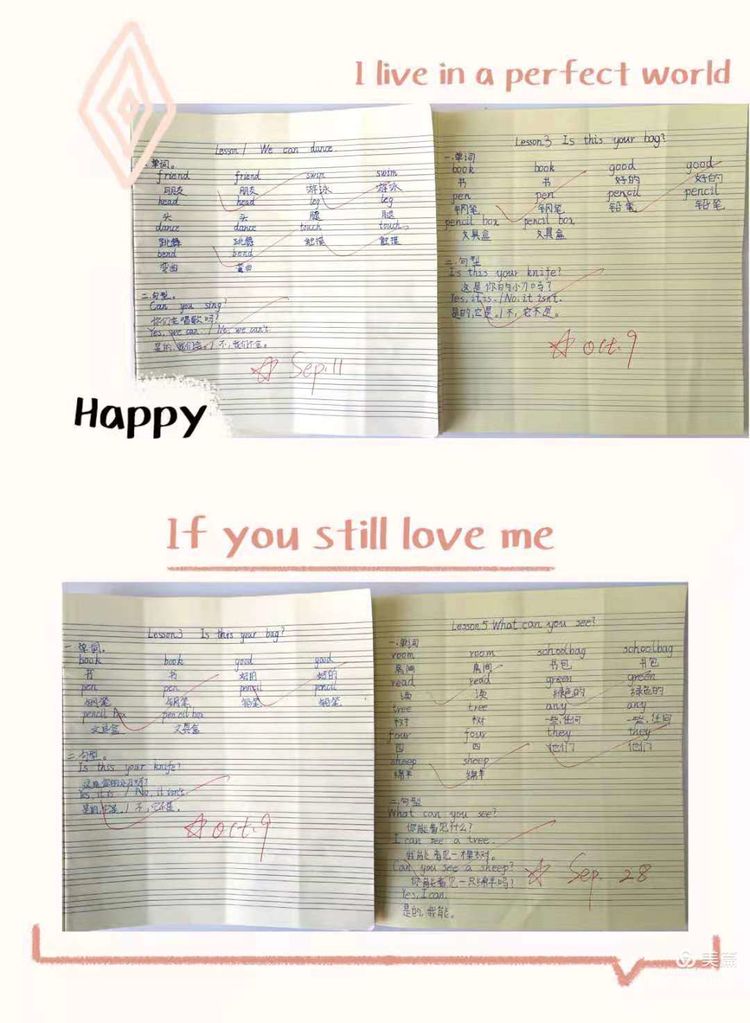 I live in a perfect world
Lesson 1 We can dance.
一.单词。
friend friend swim swim
朋友 朋友 游泳 游泳
head head leg leg
头 头 腿 腿
dance dance touch touch
跳舞 跳舞 触摸 触摸
bend bend
弯曲 弯曲
二.句型。
Can you sing?
你们会唱歌吗?
Yes, we can. / No, we can't.
是的,我们会。/ 不,我们不会。
☆ Sep. 11
Lesson 3 Is this your bag?
一.单词
book book good good
书 书 好的 好的
pen pen pencil pencil
钢笔 钢笔 铅笔 铅笔
pencil box pencil box
文具盒 文具盒
二.句型
Is this your knife?
这是你的小刀吗?
Yes, it is. / No, it isn't.
是的,它是。/ 不,它不是。
☆ Oct. 9
Happy
If you still love me
Lesson 3 Is this your bag?
一.单词。
book book good good
书 书 好的 好的
pen pen pencil pencil
钢笔 钢笔
pencil box pencil box
文具盒 文具盒
二.句型。
Is this your knife?
这是你的小刀吗?
Yes, it is. / No, it isn't.
是的,它是。/ 不,它不是。
☆ Oct. 9
Lesson 5 What can you see?
一.单词
room room schoolbag schoolbag
房间 房间 书包 书包
read read green green
读 读 绿色的 绿色的
tree tree any any
树 树 一些,任何 一些,任何
four four they they
四 四 他们 他们
sheep sheep
绵羊 绵羊
二.句型
What can you see?
你能看见什么?
I can see a tree.
我能看见一棵树。
Can you see a sheep?
你能看见一只绵羊吗?
Yes, I can.
是的,我能。
☆ Sep. 28
美篇